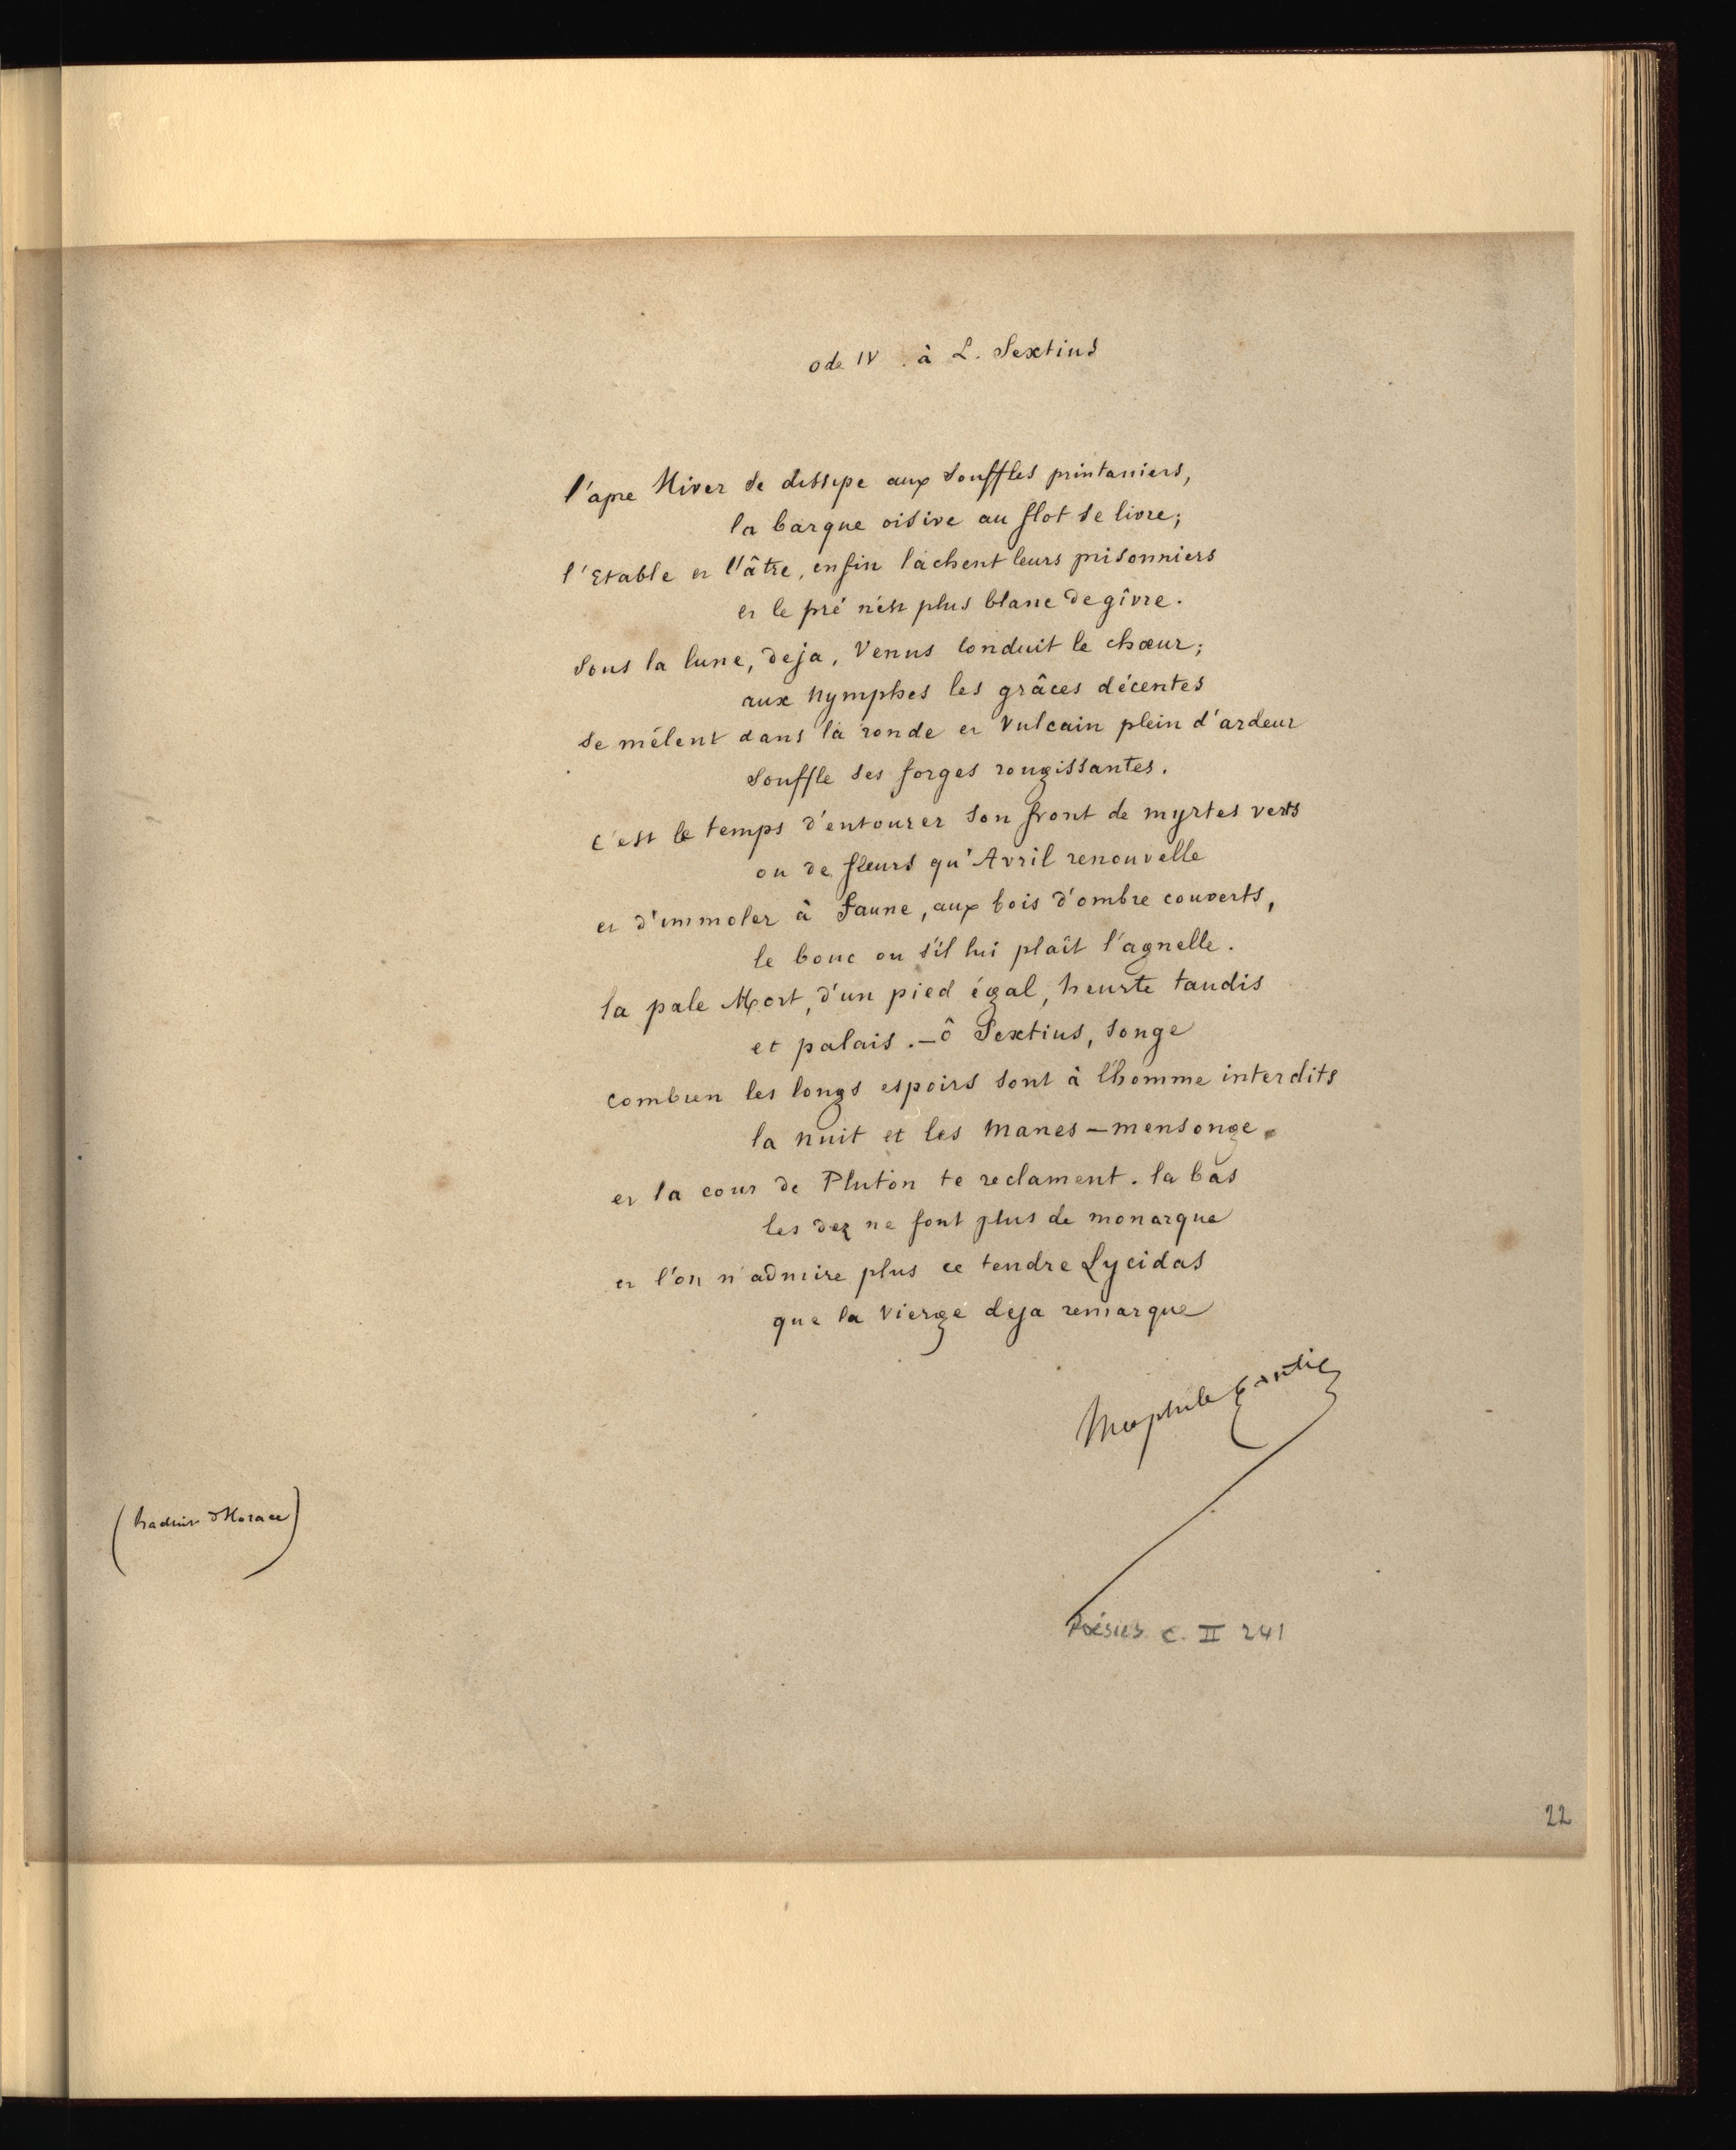 ode IV . à L. Sextius
l'apre Hiver se dissipe aux souffles printaniers,
la barque oisive au flot se livre;
l'Etable et l'âtre, enfin lâchent leurs prisonniers
et le pré n'est plus blanc de gîvre.
Sous la lune, deja, Venus conduit le chœur;
aux nymphes les grâces décentes
se mêlent dans la ronde et Vulcain plein d'ardeur
souffle ses forges rougissantes.
c'est le temps d'entourer son front de myrtes verts
ou de fleurs qu'Avril renouvelle
et d'immoler à Faune, aux bois d'ombre couverts,
le bouc ou s'il lui plaît l'agnelle.
la pale Mort, d'un pied égal, heurte taudis
et palais. — ô Sextius, songe
combien les longs espoirs sont à l'homme interdits
la nuit et les manes — mensonge.
et la cour de Pluton te reclament. la bas
les dez ne font plus de monarque
et l'on n'admire plus ce tendre Lycidas
que la vierge deja remarque
Theophile Gautier
(traduit d'Horace)
Poésies c. II 241
22